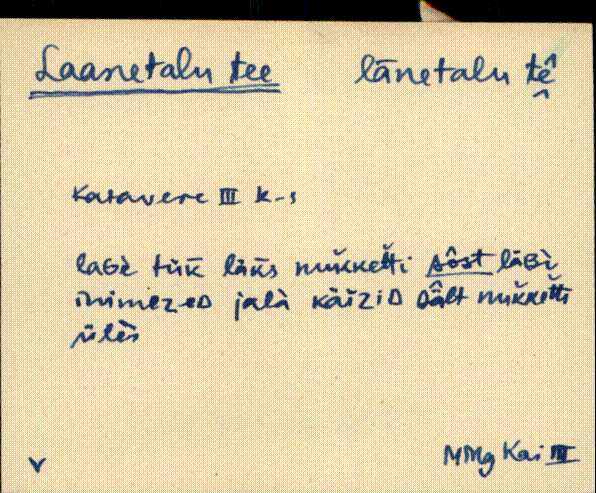 Laanetalu tee lānetalu tê̬
Kasavere III k-s
laʙè tük läks nukketti sôst läʙì
inimezeᴅ jalà käizìᴅ sält nukketti
ülès
v MMg Kai III